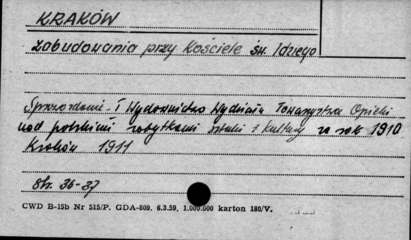 KRAKÓW
zabudowania przy kościele św. Idziego
Sprawozdanie i Wydawnictwo Wydziału Towarzystwa Opieki
nad polskimi zabytkami sztuki i kultury za rok 1910
Kraków 1911
str. 36-37
CWD B-15b Nr 515/P. GDA-809. 6.3.59, 1.000.000 karton 180/V.